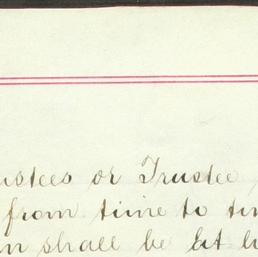 ustees or Trustee
from time to tim
n shall be let b